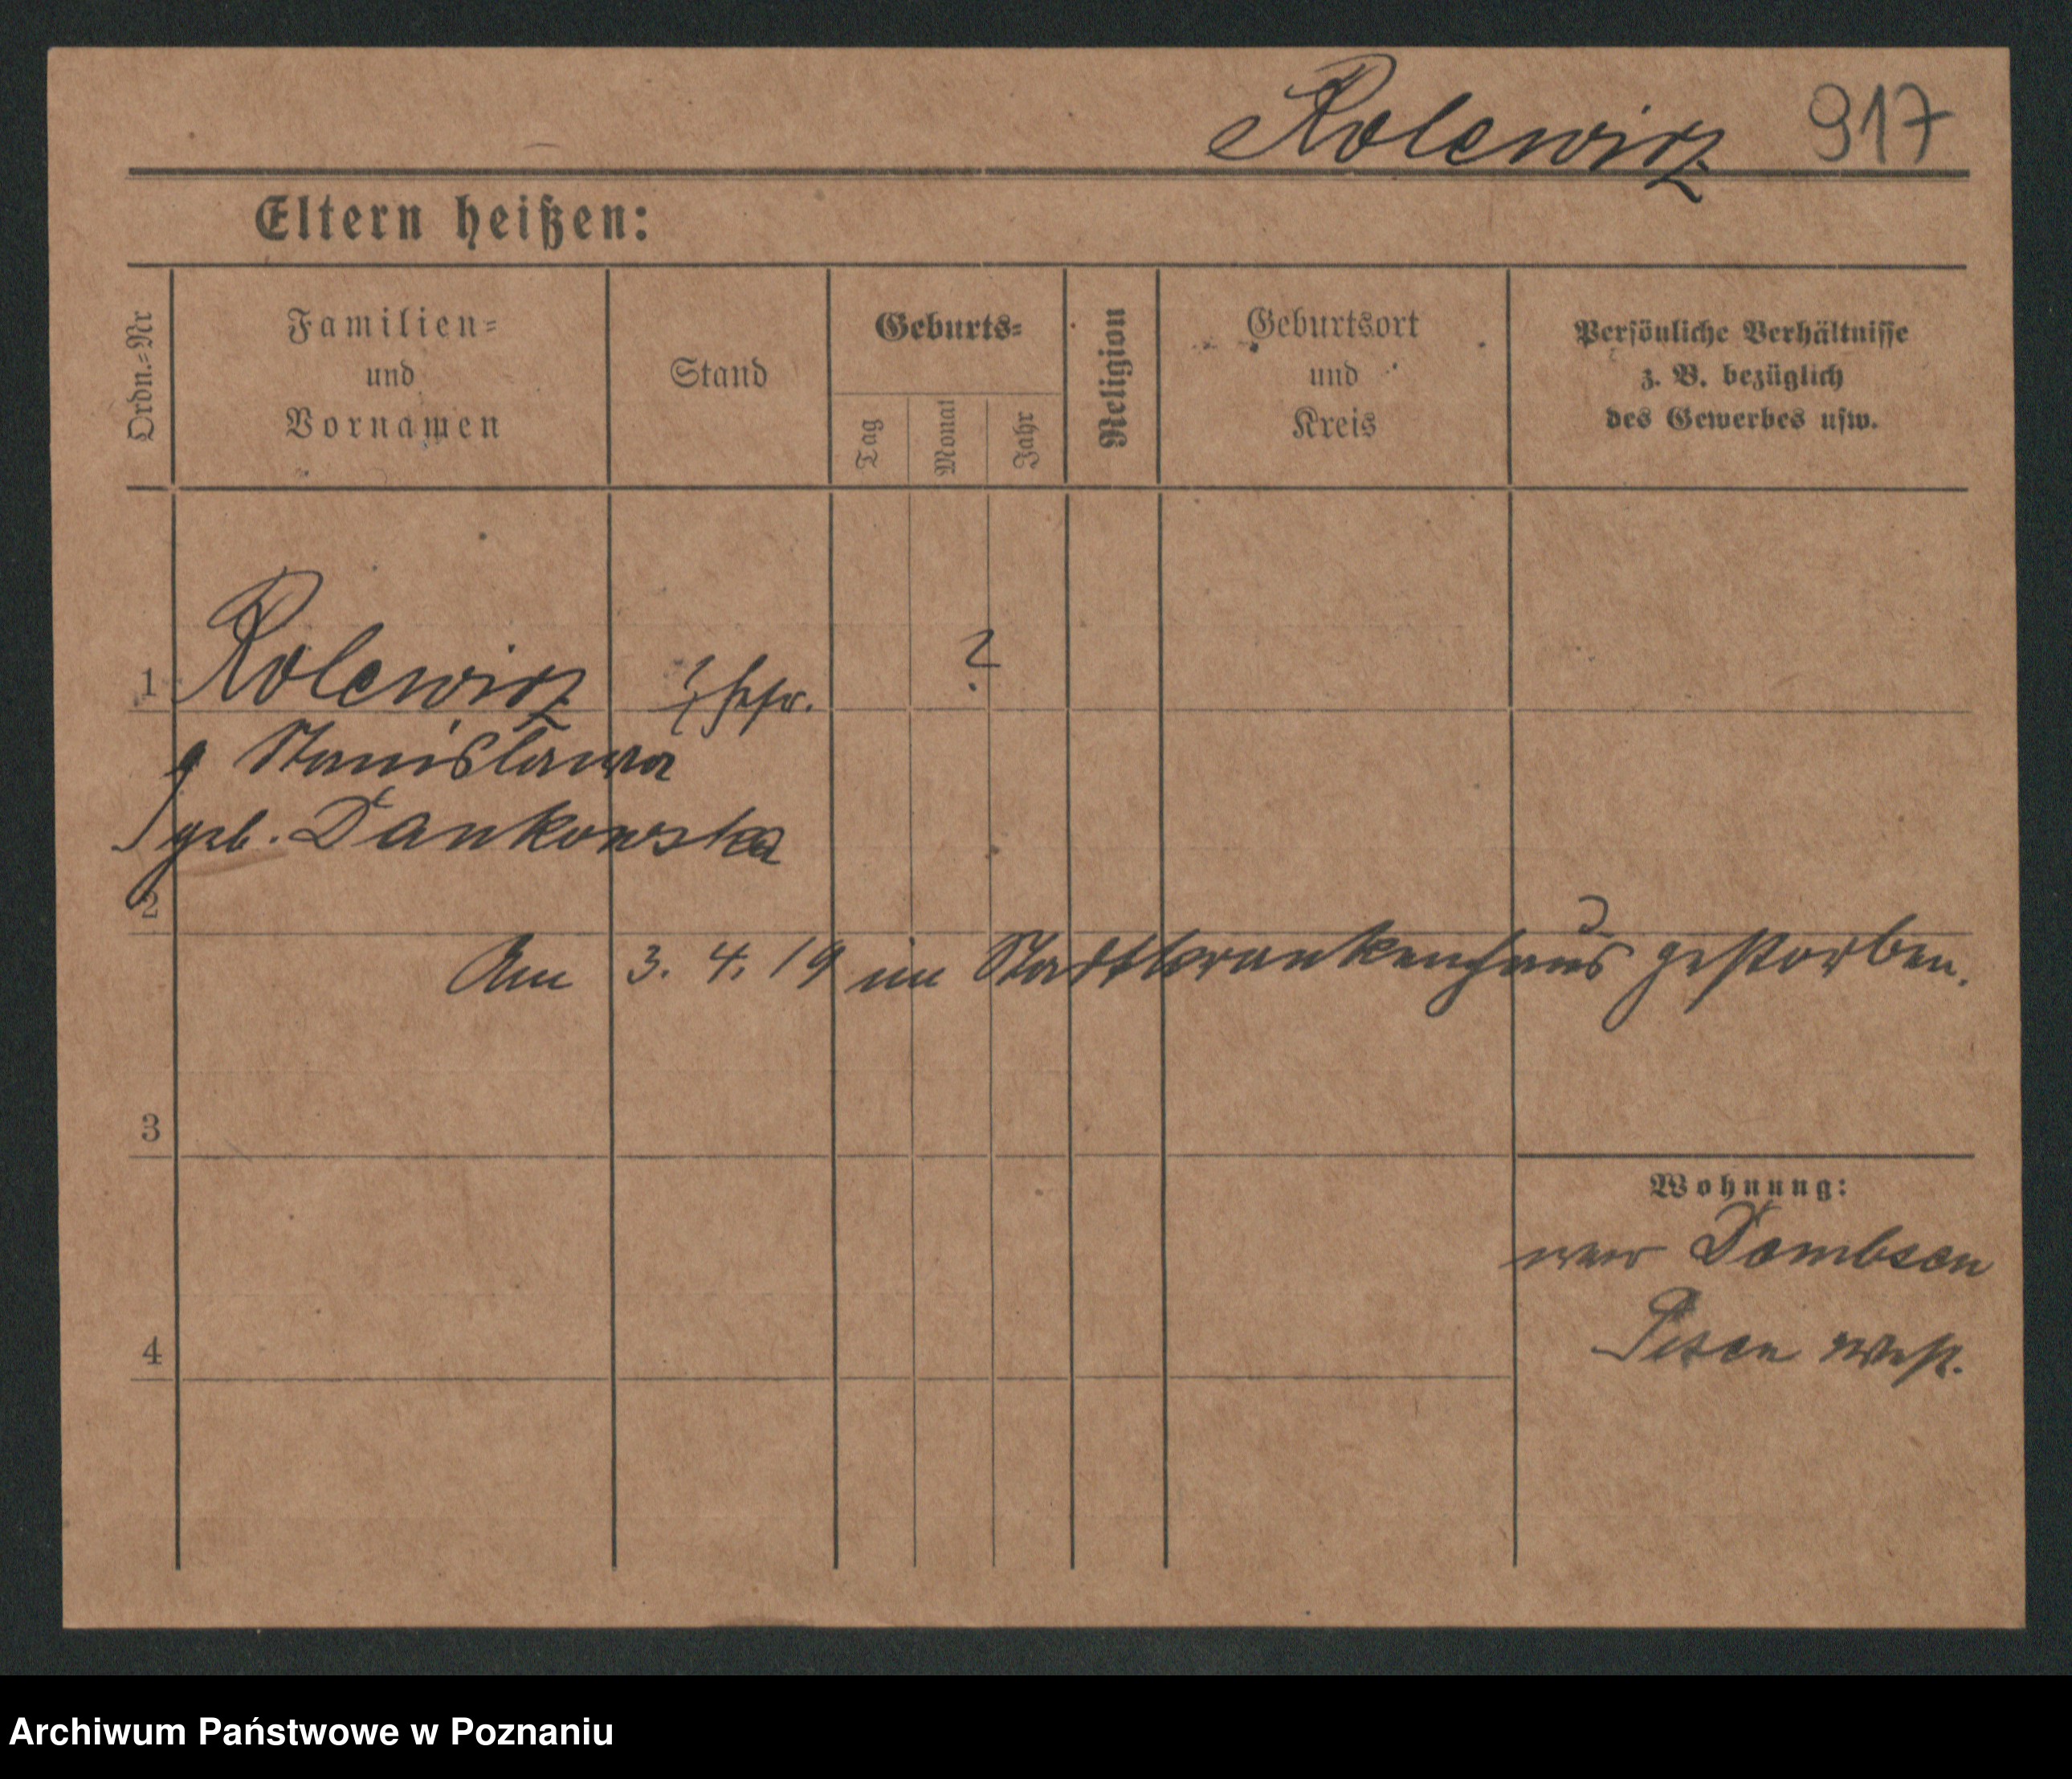 Rolewicz 917
Eltern heißen:
Ordn.=Nr
Familien=
und
Vornamen
Stand
Geburts=
Tag
Monat
Jahr
Religion
Geburtsort
und
Kreis
Persönliche Verhältnisse
z. B. bezüglich
des Gewerbes usw.
1 Rolewicz ?
Stanislawa
geb. Dankowska
2
Am 3. 4. 19 im Stadtkrankenhaus gestorben.
3
Wohnung:
war Dombsen
Posen west.
4
Archiwum Państwowe w Poznaniu